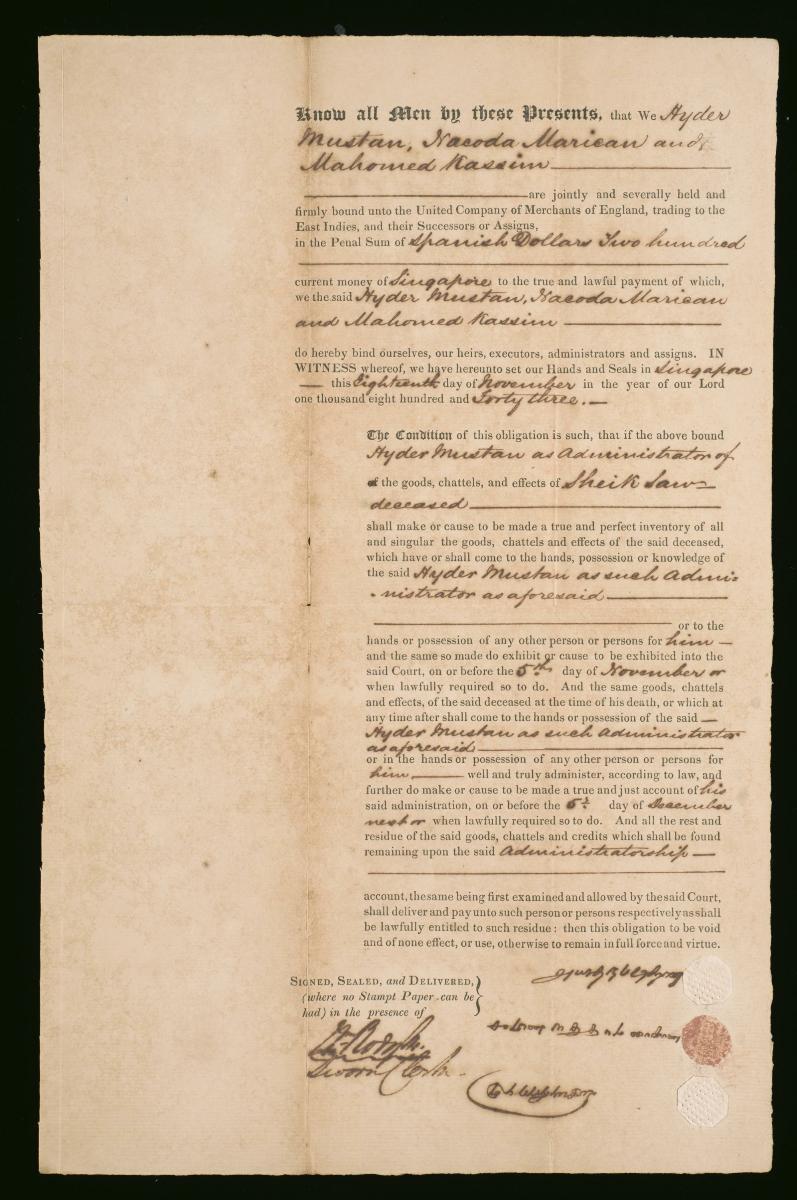 Know all Men by these Presents, that We Hyder
Mustan, Nacoda Marican and
Mahomed Kassim
are jointly and severally held and
firmly bound unto the United Company of Merchants of England, trading to the
East Indies, and their Successors or Assigns,
in the Penal Sum of Spanish Dollars Two hundred
current money of Singapore to the true and lawful payment of which,
we the said Hyder Mustan, Nacoda Marican
and Mahomed Kassim
do hereby bind ourselves, our heirs, executors, administrators and assigns. IN
WITNESS whereof, we have hereunto set our Hands and Seals in Singapore
this Eighteenth day of November in the year of our Lord
one thousand eight hundred and Forty three.
The Condition of this obligation is such, that if the above bound
Hyder Mustan as Administrator of
the goods, chattels, and effects of Sheik Saw
deceased
shall make or cause to be made a true and perfect inventory of all
and singular the goods, chattels and effects of the said deceased,
which have or shall come to the hands, possession or knowledge of
the said Hyder Mustan as such Admi-
-nistrator as aforesaid
or to the
hands or possession of any other person or persons for him
and the same so made do exhibit or cause to be exhibited into the
said Court, on or before the 5th day of November or
when lawfully required so to do. And the same goods, chattels
and effects, of the said deceased at the time of his death, or which at
any time after shall come to the hands or possession of the said
Hyder Mustan as such Administrator
as aforesaid
or in the hands or possession of any other person or persons for
him well and truly administer, according to law, and
further do make or cause to be made a true and just account of his
said administration, on or before the day of December
next or when lawfully required so to do. And all the rest and
residue of the said goods, chattels and credits which shall be found
remaining upon the said Administratorship
account, the same being first examined and allowed by the said Court,
shall deliver and pay unto such person or persons respectively as shall
be lawfully entitled to such residue : then this obligation to be void
and of none effect, or use, otherwise to remain in full force and virtue.
SIGNED, SEALED, and DELIVERED,
(where no Stampt Paper can be
had) in the presence of
Sworn Clerk.